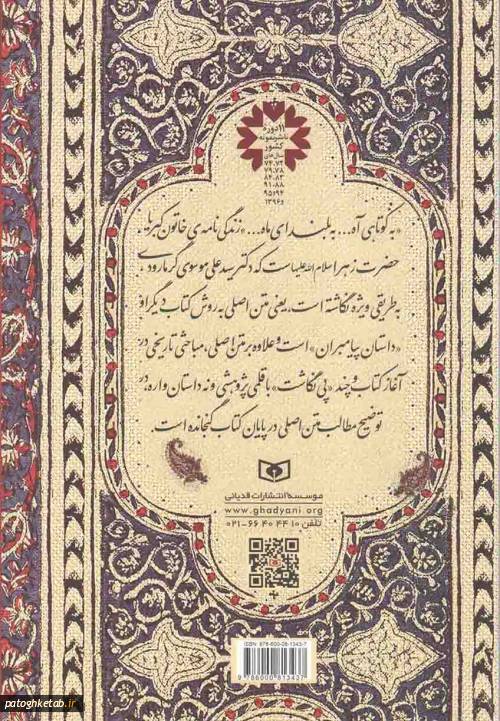 ۱۱دوره
ناشر نمونه
کشور
سال‌های
۷۴،۷۳
۷۹،۷۸
۸۴،۸۳
۹۱،۸۸
۹۵،۹۴
۱۳۹۶و
«به کوتاهی آه... به بلندای ماه...» زندگی نامه‌ی خاتون کبریا،
حضرت زهرا سلام الله علیها ست که دکتر سید علی موسوی گرمارودی
به طریقی ویژه نگاشته است، یعنی متن اصلی به روش کتاب دیگر او
«داستان پیامبران» است و علاوه بر متن اصلی، مباحثی تاریخی در
آغاز کتاب و چند «پی نگاشت» با قلمی پژوهشی و نه داستان واره، در
توضیح مطالب متن اصلی در پایان کتاب گنجانده است.
موسسه انتشارات قدیانی
www.ghadyani.org
تلفن ۱۰ ۴۴ ۴۰ ۶۶-۰۲۱
ISBN: 978-600-08-1343-7
9 786000 813437
patoghketab.ir